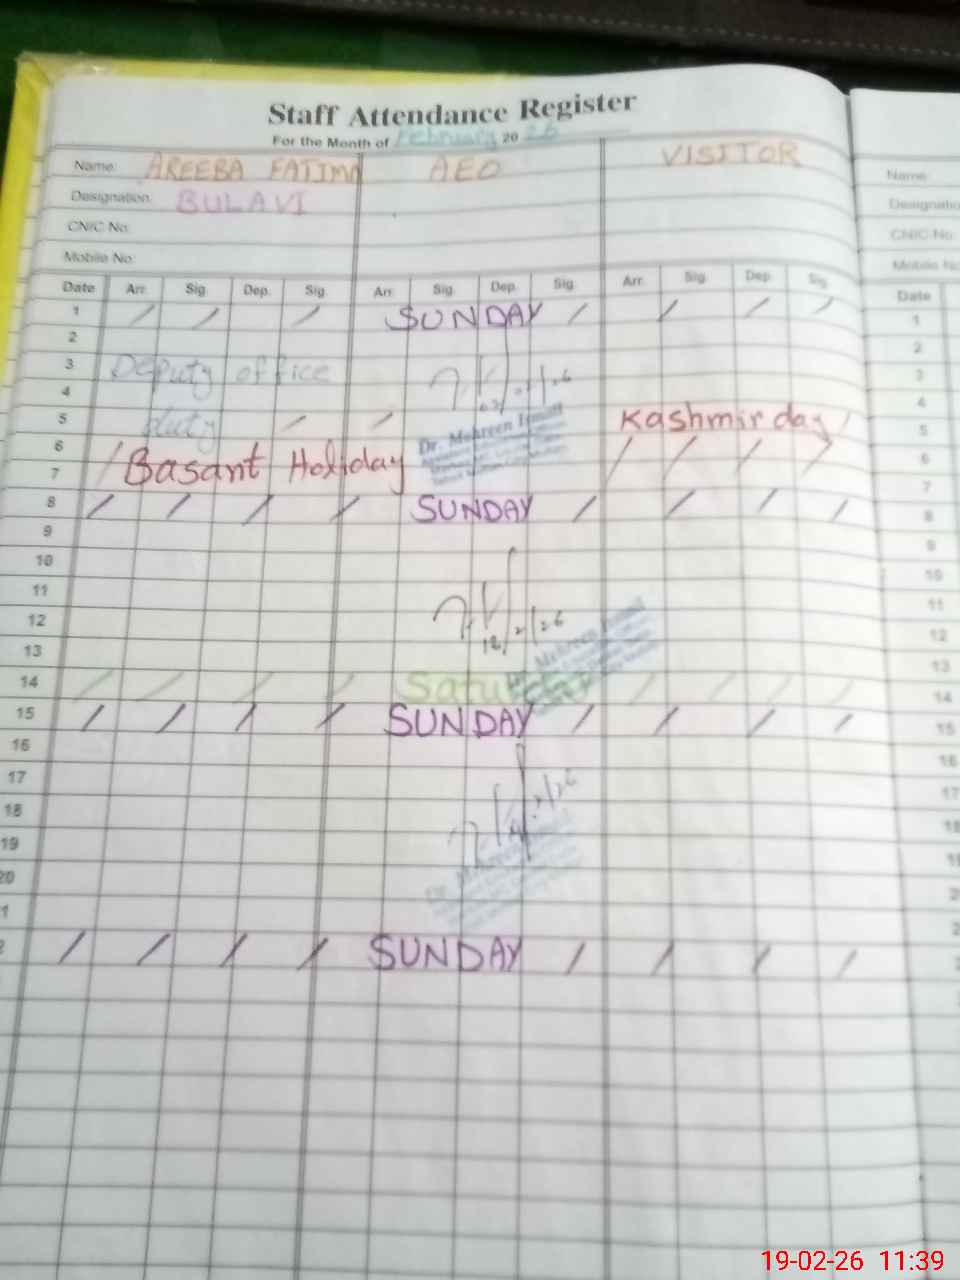 Staff Attendance Register
For the Month of February 2026
Name: AREEBA FATIMA AEO VISITOR
Designation: BULAVI
CNIC No:
Mobile No:
Date Arr. Sig. Dep. Sig. Arr. Sig. Dep. Sig. Arr. Sig. Dep. Sig.
1 SUNDAY
2
3 Deputy office
4
5 duty Kashmir day
Dr. Mehreen
6
7 Basant Holiday
8 SUNDAY
9
10
11
12 12/2/26
Mehreen
13
14 Saturday
15 SUNDAY
16
17
18
19
20
1
2 SUNDAY
Name:
Designatio
CNIC No:
Mobile No
Date
1
2
3
4
5
6
7
8
9
10
11
12
13
14
15
16
17
18
19
2
2
19-02-26 11:39